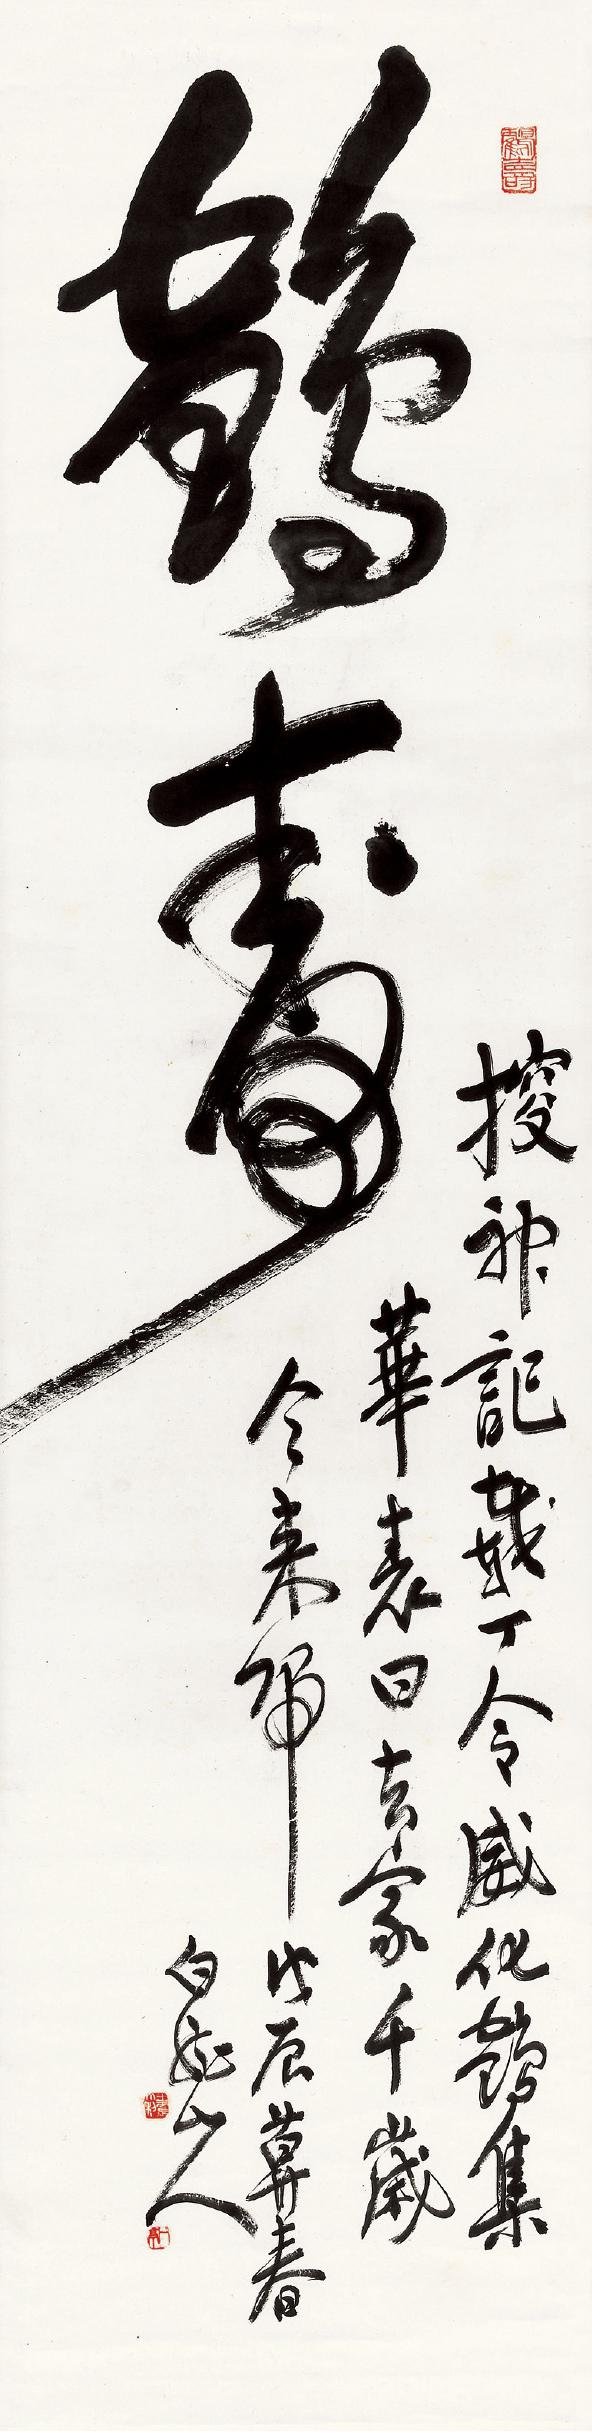 鶴壽
搜神記載丁令威化鶴集
華表曰去家千歲
今來歸
戊辰暮春
白龍山人